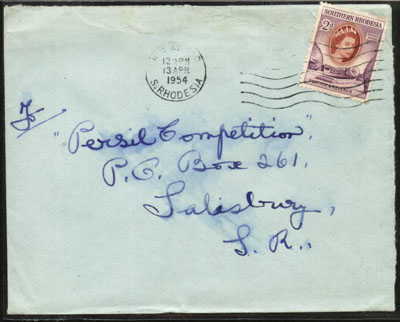 SOUTHERN RHODESIA
2d
12 PM
13 APR
1954
S. RHODESIA
"Persil Competition",
P.O. Box 261,
Salisbury,
S. R.,